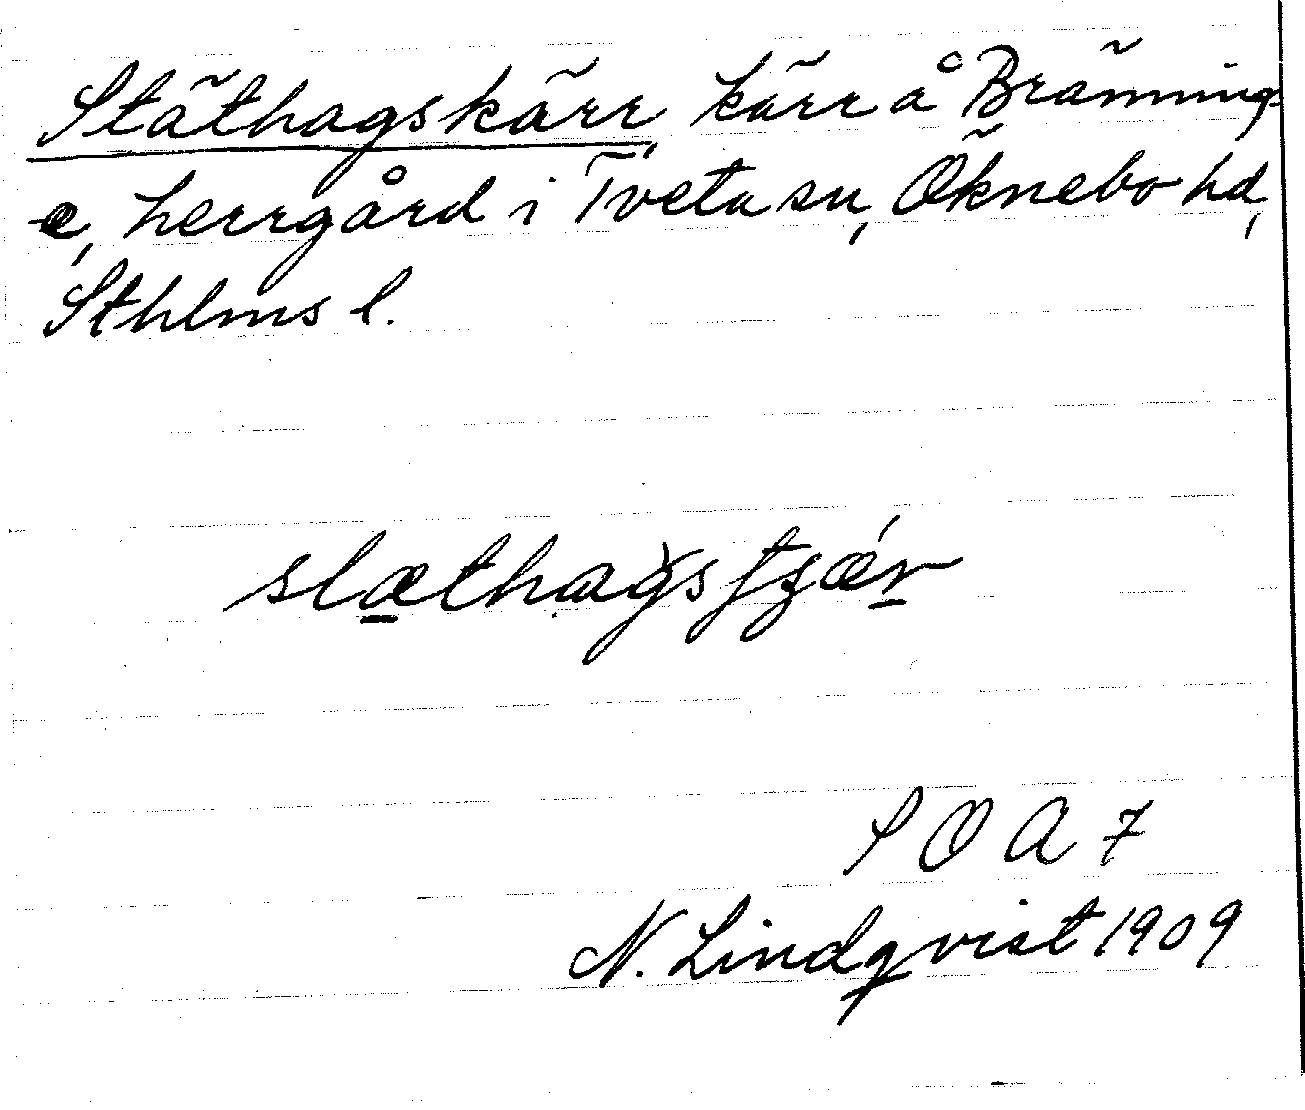 Stäthagskärr, kärr å Bränning
e, herrgård i Tveta sn, Öknebo hd,
Sthlms l.
slæthagstzǽr
S O A 7
N. Lindqvist 1909